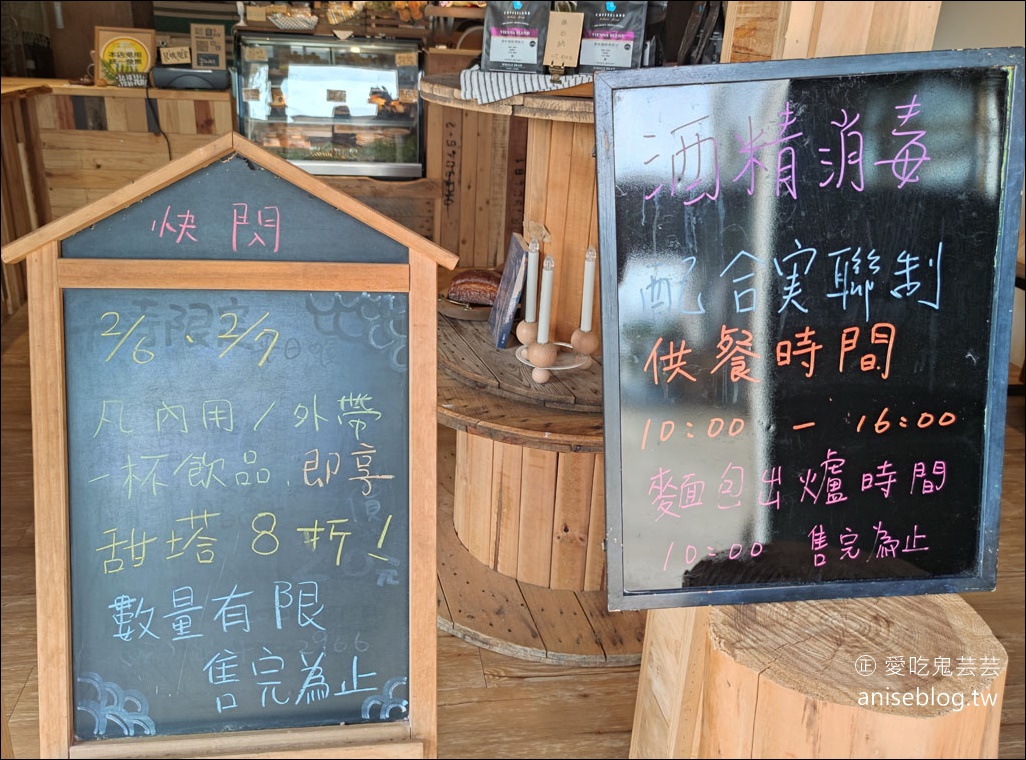 快閃
2/6、2/7
凡內用/外帶
一杯飲品,即享
甜塔8折!
數量有限
售完為止
酒精消毒
配合実聯制
供餐時間
10:00 – 16:00
麵包出爐時間
10:00 售完為止
COFFEELAND
VIENNA BLEND
愛吃鬼芸芸
aniseblog.tw